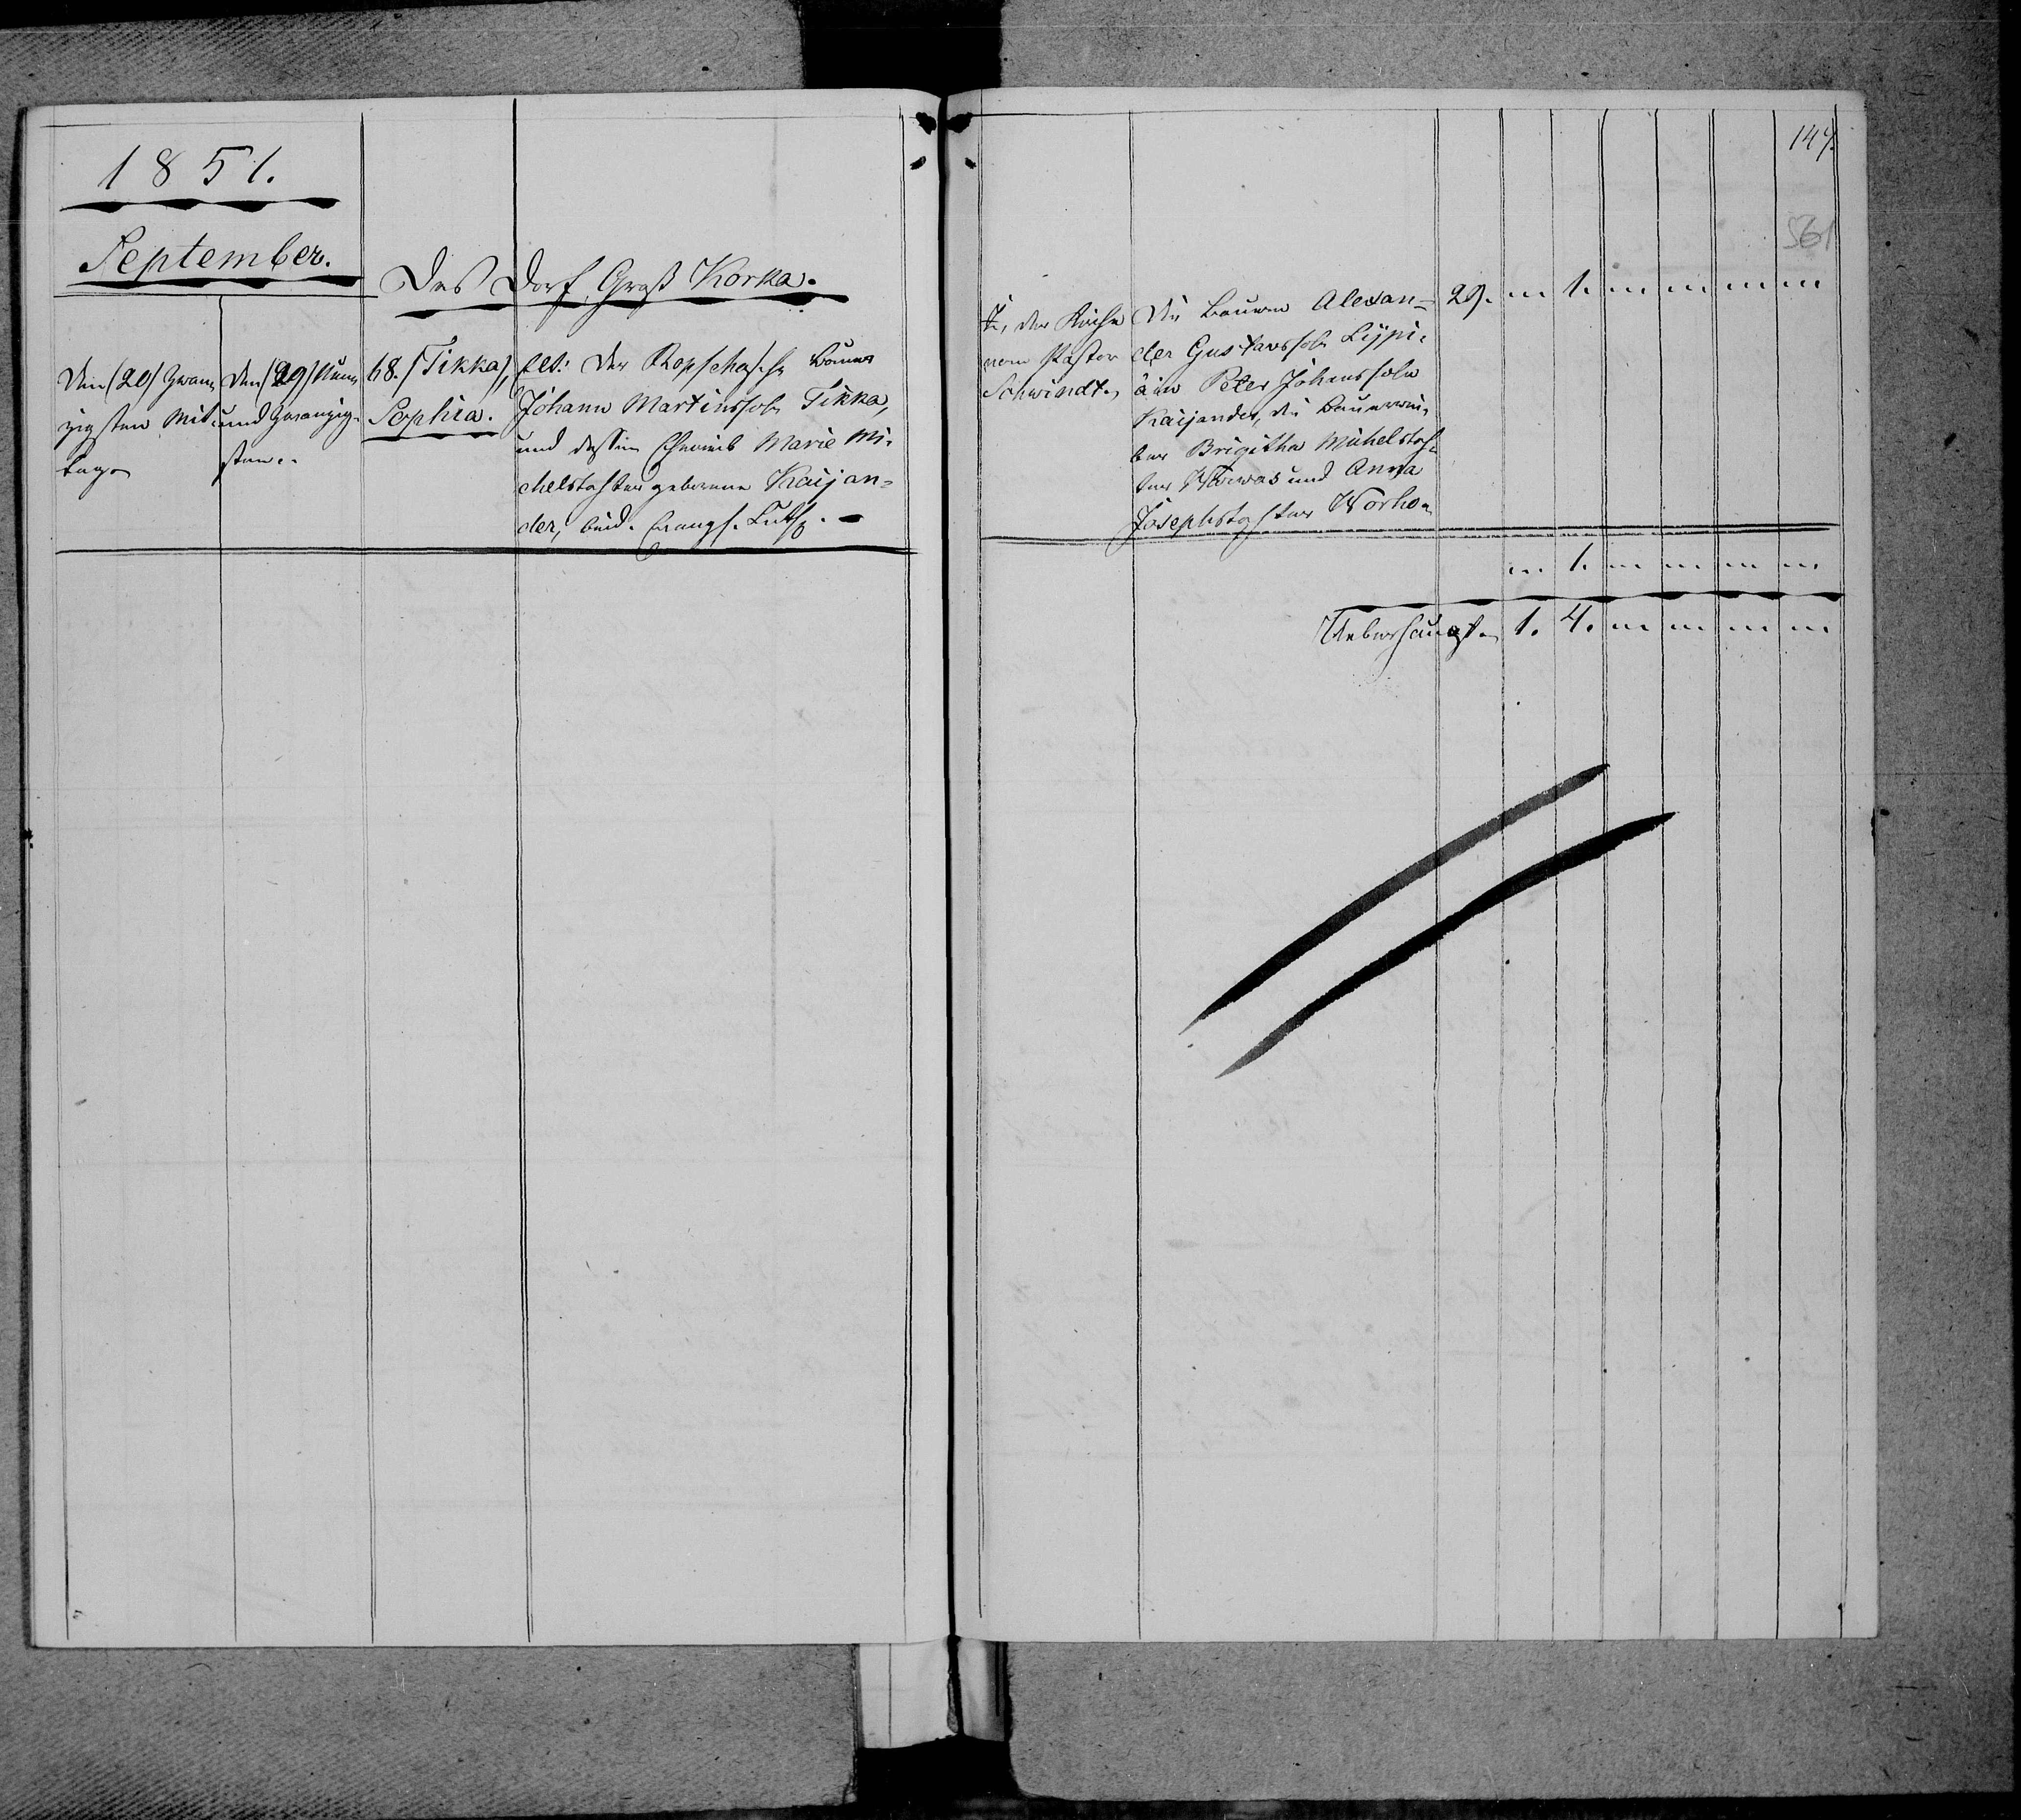 1851.
September.
Das Dorf Groß Korka.
Den (20) Zwan-
zigsten Mit-
tags
den (29) Neun
und Zwanzig-
sten.
68. (Tikka),
Sophia.
Elt: der Ropschasche Bauer
Johann Martinssohn Tikka,
und dessen Eheweib Marie Mi-
chelstochter geborene Kaijan-
der, beid. Evangl. Luth.
147.
561
In der Kirche
vom Pastor
Schwindt.
Die Bauern Alexan-
der Gustavssohn Lippi-
äin Peter Johanssohn
Kaijander, die Bauerwei-
ber Brigitha Michelstoch-
ter und Anna
Josephstochter Worho.
29. " 1. " " " "
" 1. " " " "
Ueberhaupt. 1. 4. " " " "